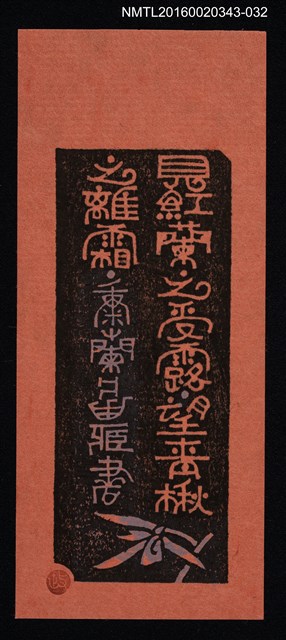 NMTL20160020343-032
見紅蘭之受露·望青楸
之離霜·蘭書